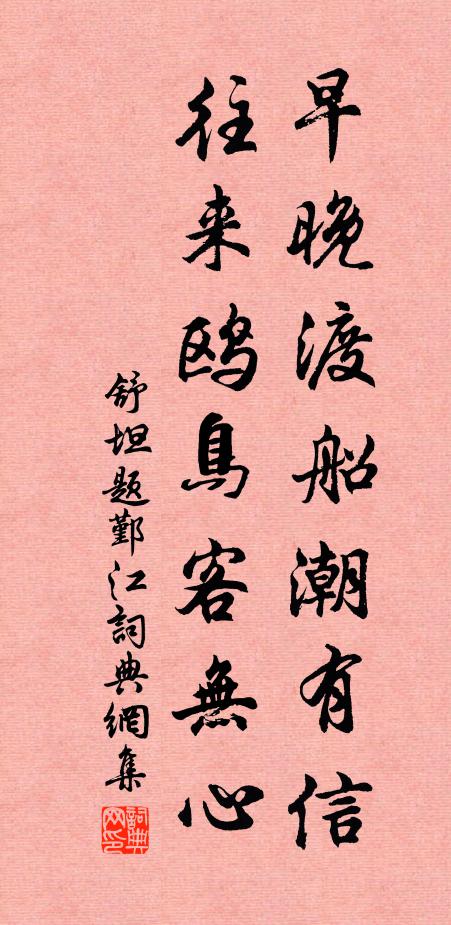 早晚渡船潮有信
往来鸥鳥客無心
舒坦题鄞江詞典網集
詞典网印